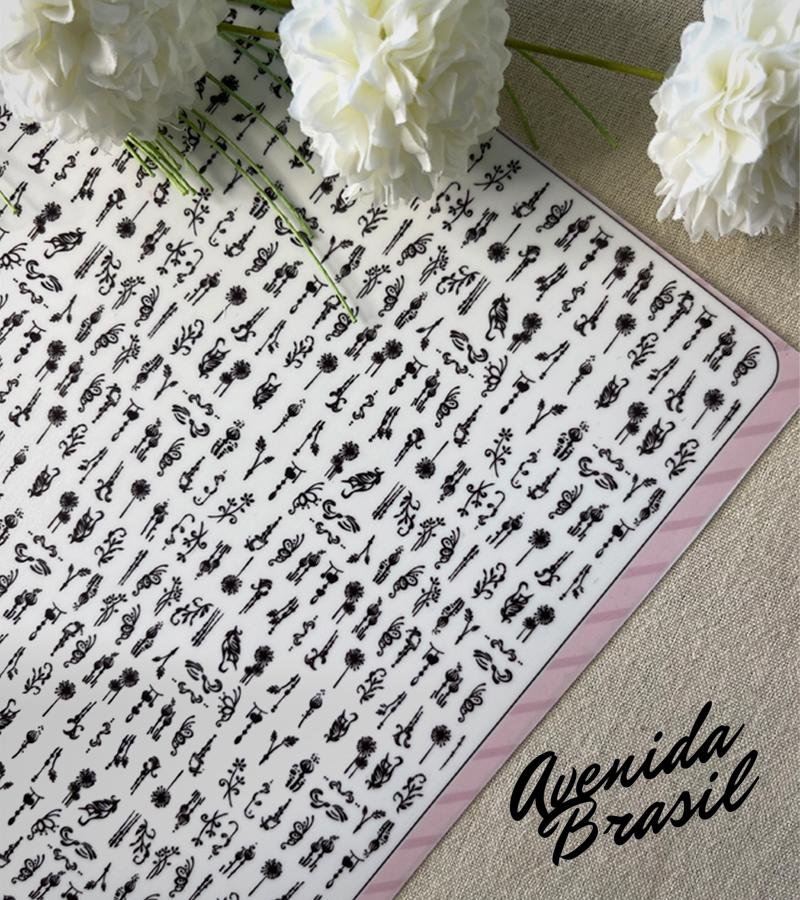 Avenida
Brasil